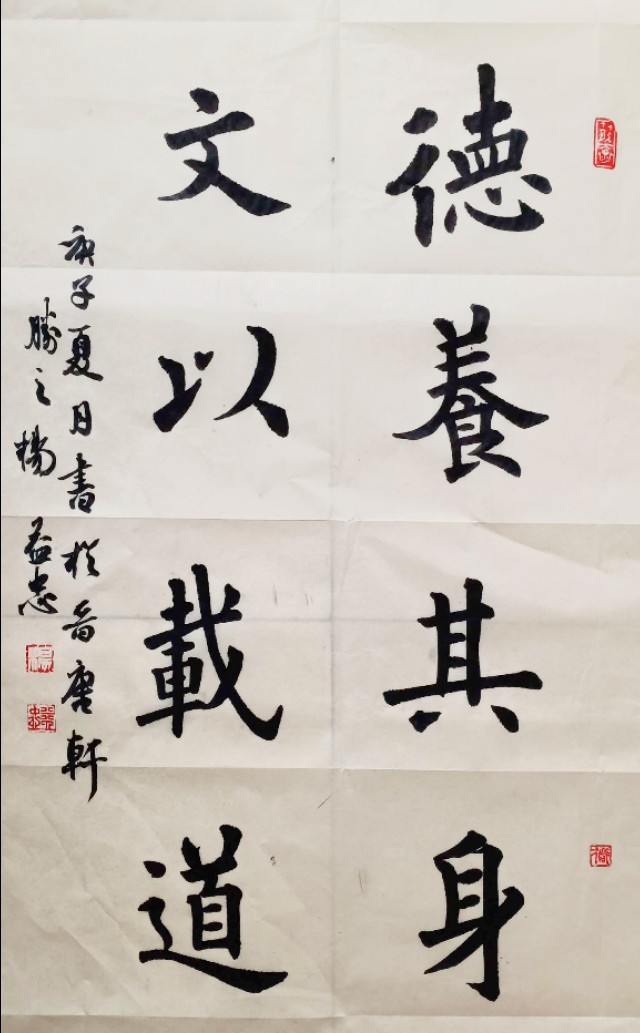 德養其身
文以載道
庚子夏日書於晉唐軒
勝之楊益忠